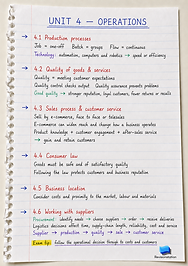 UNIT 4 — OPERATIONS
→ 4.1 Production processes
Job = one-off Batch = groups Flow = continuous
Technology: automation, computers and robotics → speed or efficiency
→ 4.2 Quality of goods & services
Quality = meeting customer expectations
Quality control checks output Quality assurance prevents problems
Good quality → stronger reputation, loyal customers, fewer returns or recalls
→ 4.3 Sales process & customer service
Sell by e-commerce, face to face or telesales
E-commerce can widen reach and change how a business operates
Product knowledge + customer engagement + after-sales service
→ gain and retain customers
→ 4.4 Consumer law
Goods must be safe and of satisfactory quality
Following the law protects customers and business reputation
→ 4.5 Business location
Consider costs and proximity to the market, labour and materials
→ 4.6 Working with suppliers
Procurement: identify needs → choose suppliers → order → receive deliveries
Logistics decisions affect time, supply-chain length, reliability, cost and service
Supplier → production → quality → sale → customer service
Exam tip: follow the operational decision through to costs and customers